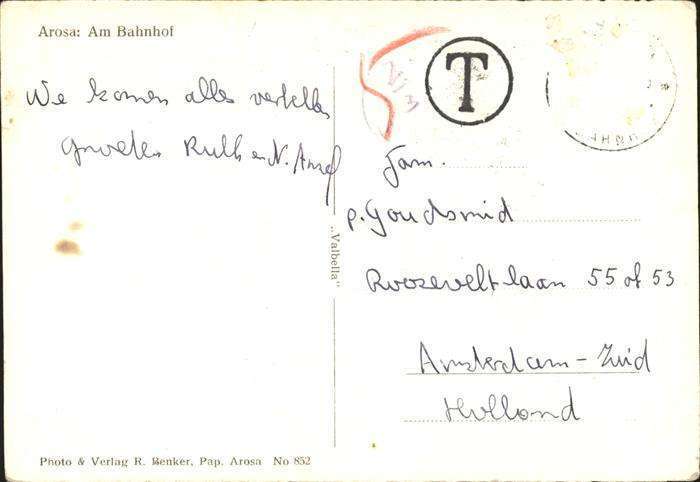 Arosa: Am Bahnhof
We komen alles vertellen
Groeten Ruth en N.
T
Fam.
P. Goudsmid
Rooseveltlaan 55 of 53
Amsterdam - Zuid
Holland
„Valbella"
Photo & Verlag R. Benker, Pap. Arosa No 852